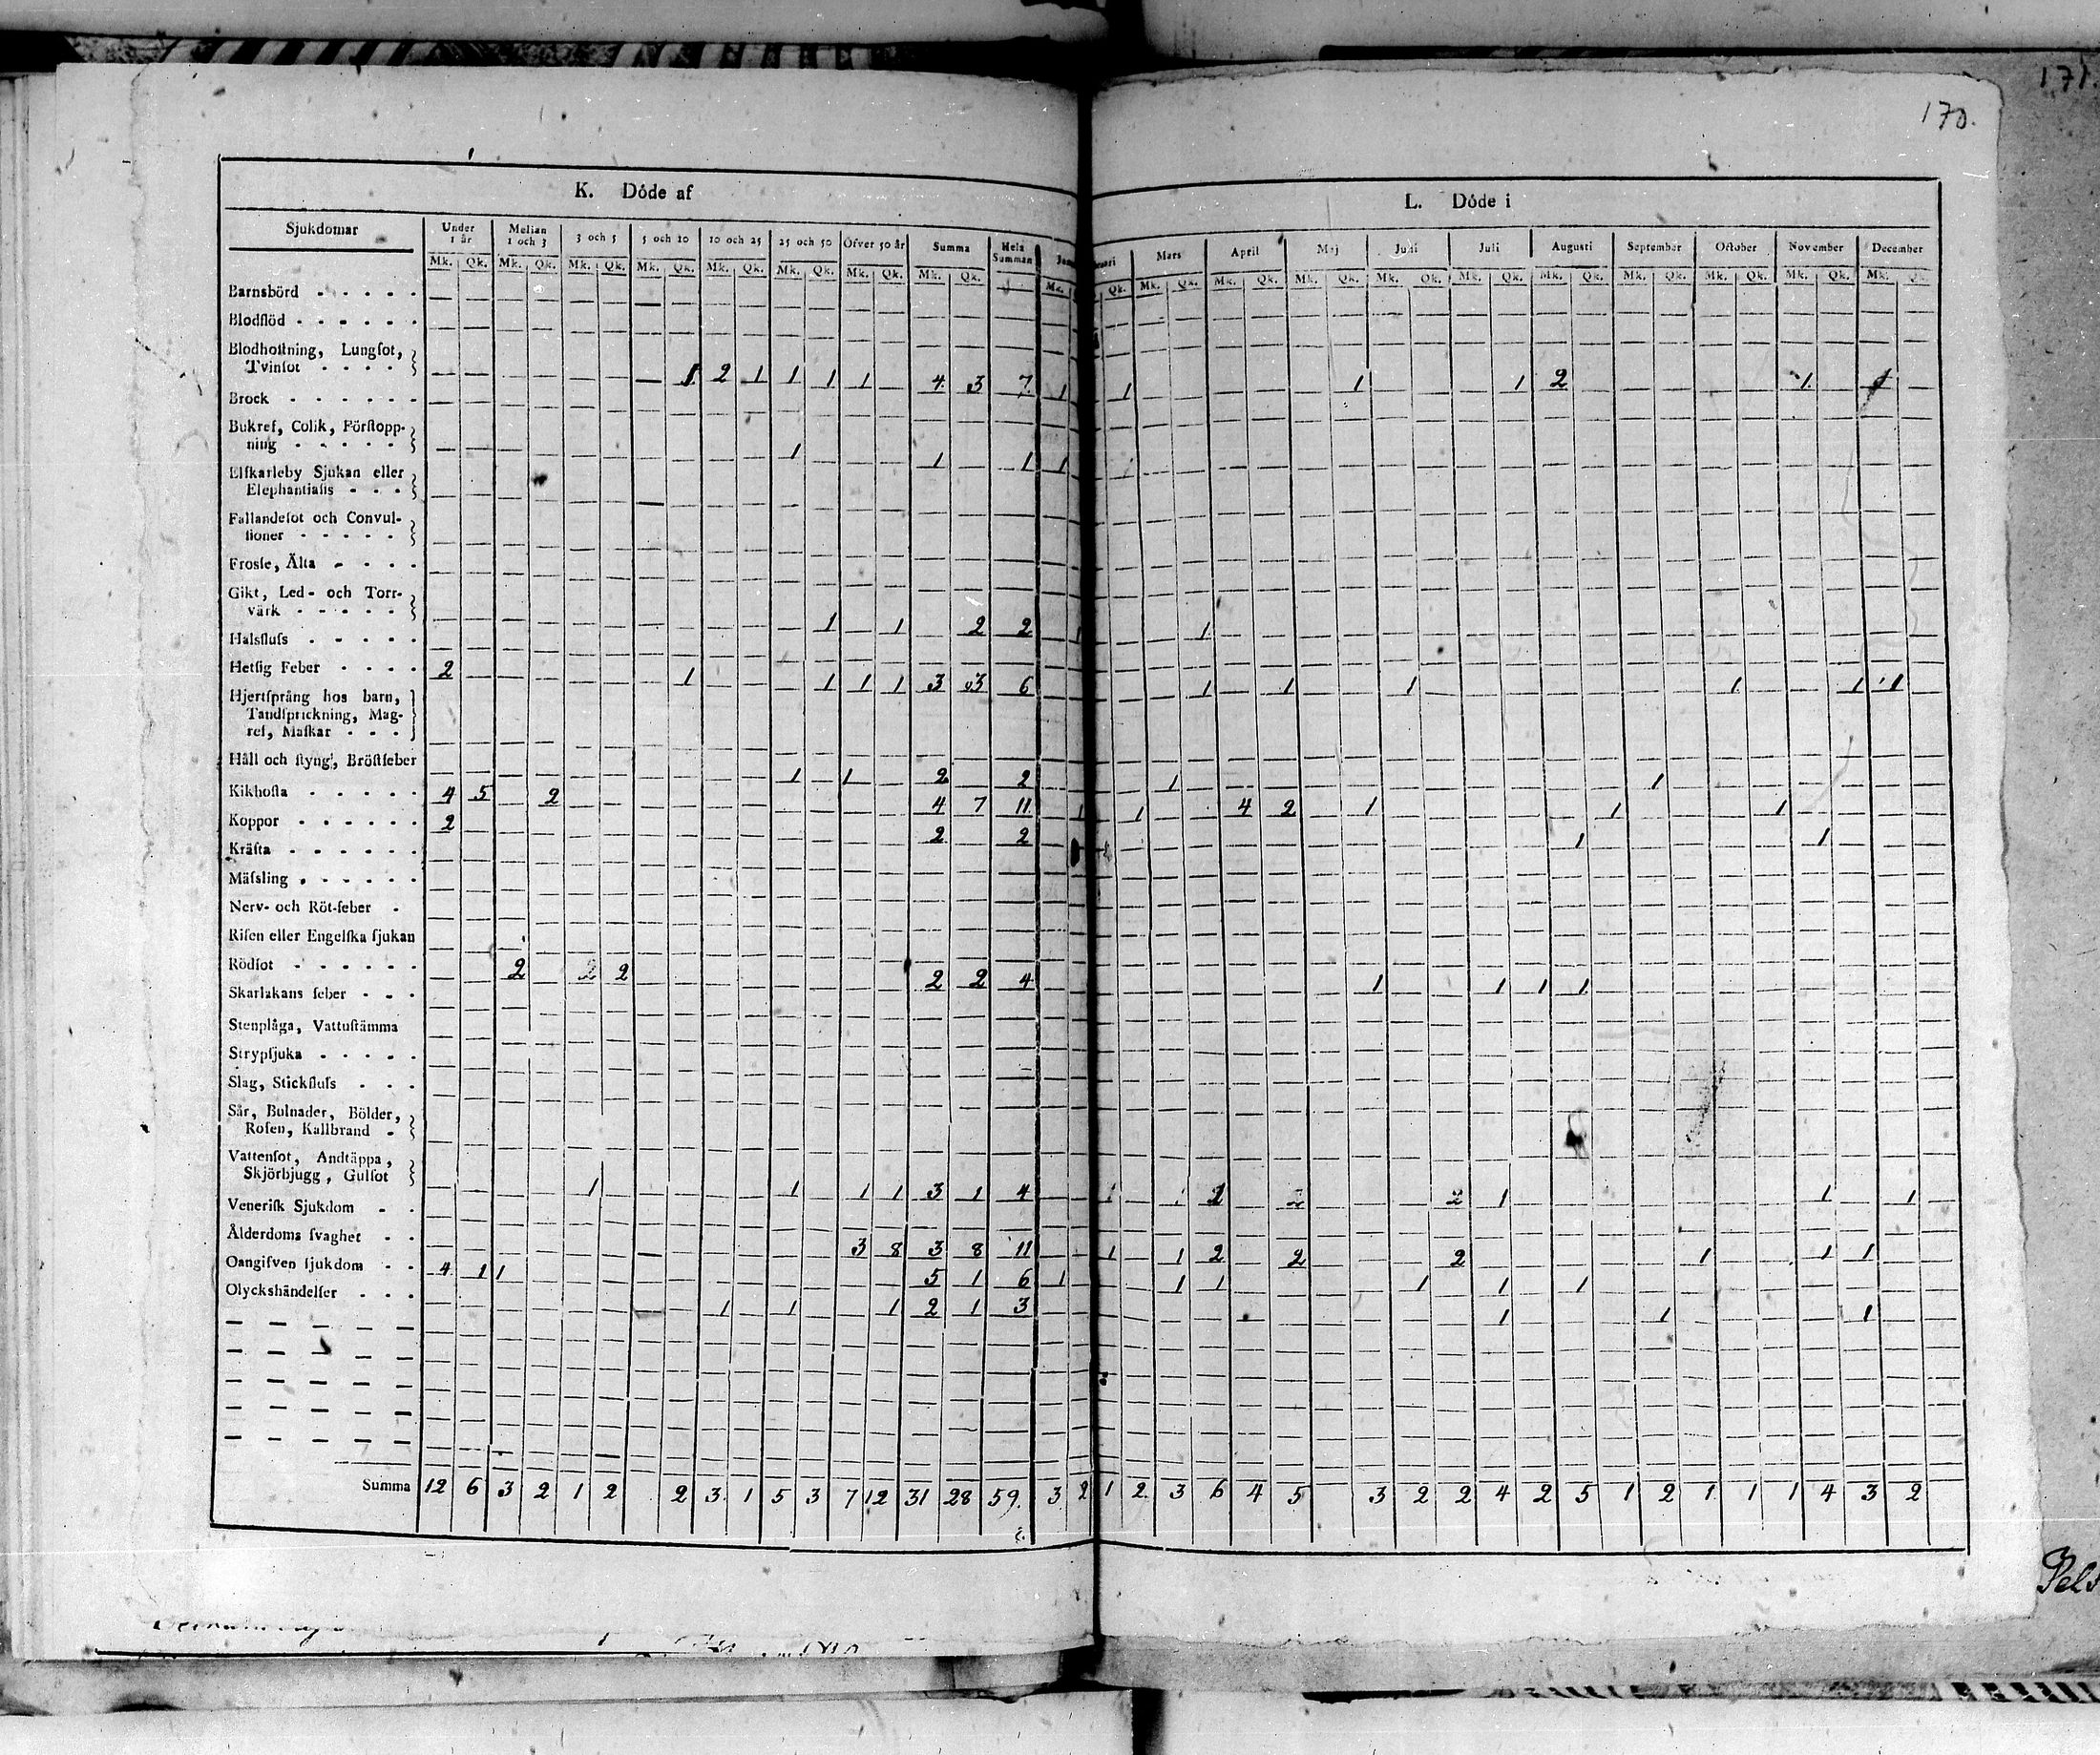 171.
170.
K. Döde af
L. Döde i
Sjukdomar Under 1 år Melian 1 och 3 3 och 5 5 och 10 10 och 25 25 och 50 Öfver 50 år Summa Hela Summan
Mars April Maj Juni Juli Augusti September October November December
Mk. Qk. Mk. Qk. Mk. Qk. Mk. Qk. Mk. Qk. Mk. Qk. Mk. Qk. Mk. Qk. Mk.
Qk. Mk. Qk. Mk. Qk. Mk. Qk. Mk. Qk. Mk. Qk. Mk. Qk. Mk. Qk. Mk. Qk. Mk. Qk. Mk. Qk.
Barnsbörd
Blodflöd
Blodhoſtning, Lungſot,
Tvinſot 1 2 1 1 1 1 4 3 7 1 1 1 1 2 1 1
Brock
Bukref, Colik, Förſtopp-
ning 1 1 1 1
Elſkarleby Sjukan eller
Elephantiaſis
Fallandeſot och Convul-
ſioner
Frosſe, Älta
Gikt, Led- och Torr-
värk 1 1 2 2 1
Halsfluſs
Hetſig Feber 2 1 1 1 1 3 3 6 1 1 1 1 1 1
Hjertſprång hos barn,
Tandſprickning, Mag-
ref, Maſkar
Håll och ſtyng, Bröſtfeber 1 1 2 2 1 1
Kikhoſta 4 5 2 4 7 11 1 1 4 2 1 1 1
Koppor 2 2 2 1 1
Kräfta
Mäſsling
Nerv- och Röt-feber
Riſen eller Engelſka ſjukan
Rödſot 2 2 2 2 2 4 1 1 1 1
Skarlakans feber
Stenplåga, Vattuſtämma
Strypſjuka
Slag, Stickfluſs
Sår, Bulnader, Bölder,
Roſen, Kallbrand
Vattenſot, Andtäppa,
Skjörbjugg, Gulſot 1 1 1 1 3 1 4 2 2 1 1 1
Veneriſk Sjukdom
Ålderdoms ſvaghet 3 8 3 8 11 1 1 2 2 2 1 1 1
Oangifven ſjukdom 4 1 1 5 1 6 1 1 1 1 1 1
Olyckshändelſer 1 1 1 2 1 3 1 1 1
Summa 12 6 3 2 1 2 2 3 1 5 3 7 12 31 28 59. 3 2 1 2 3 6 4 5 3 2 2 4 2 5 1 2 1 1 1 4 3 2